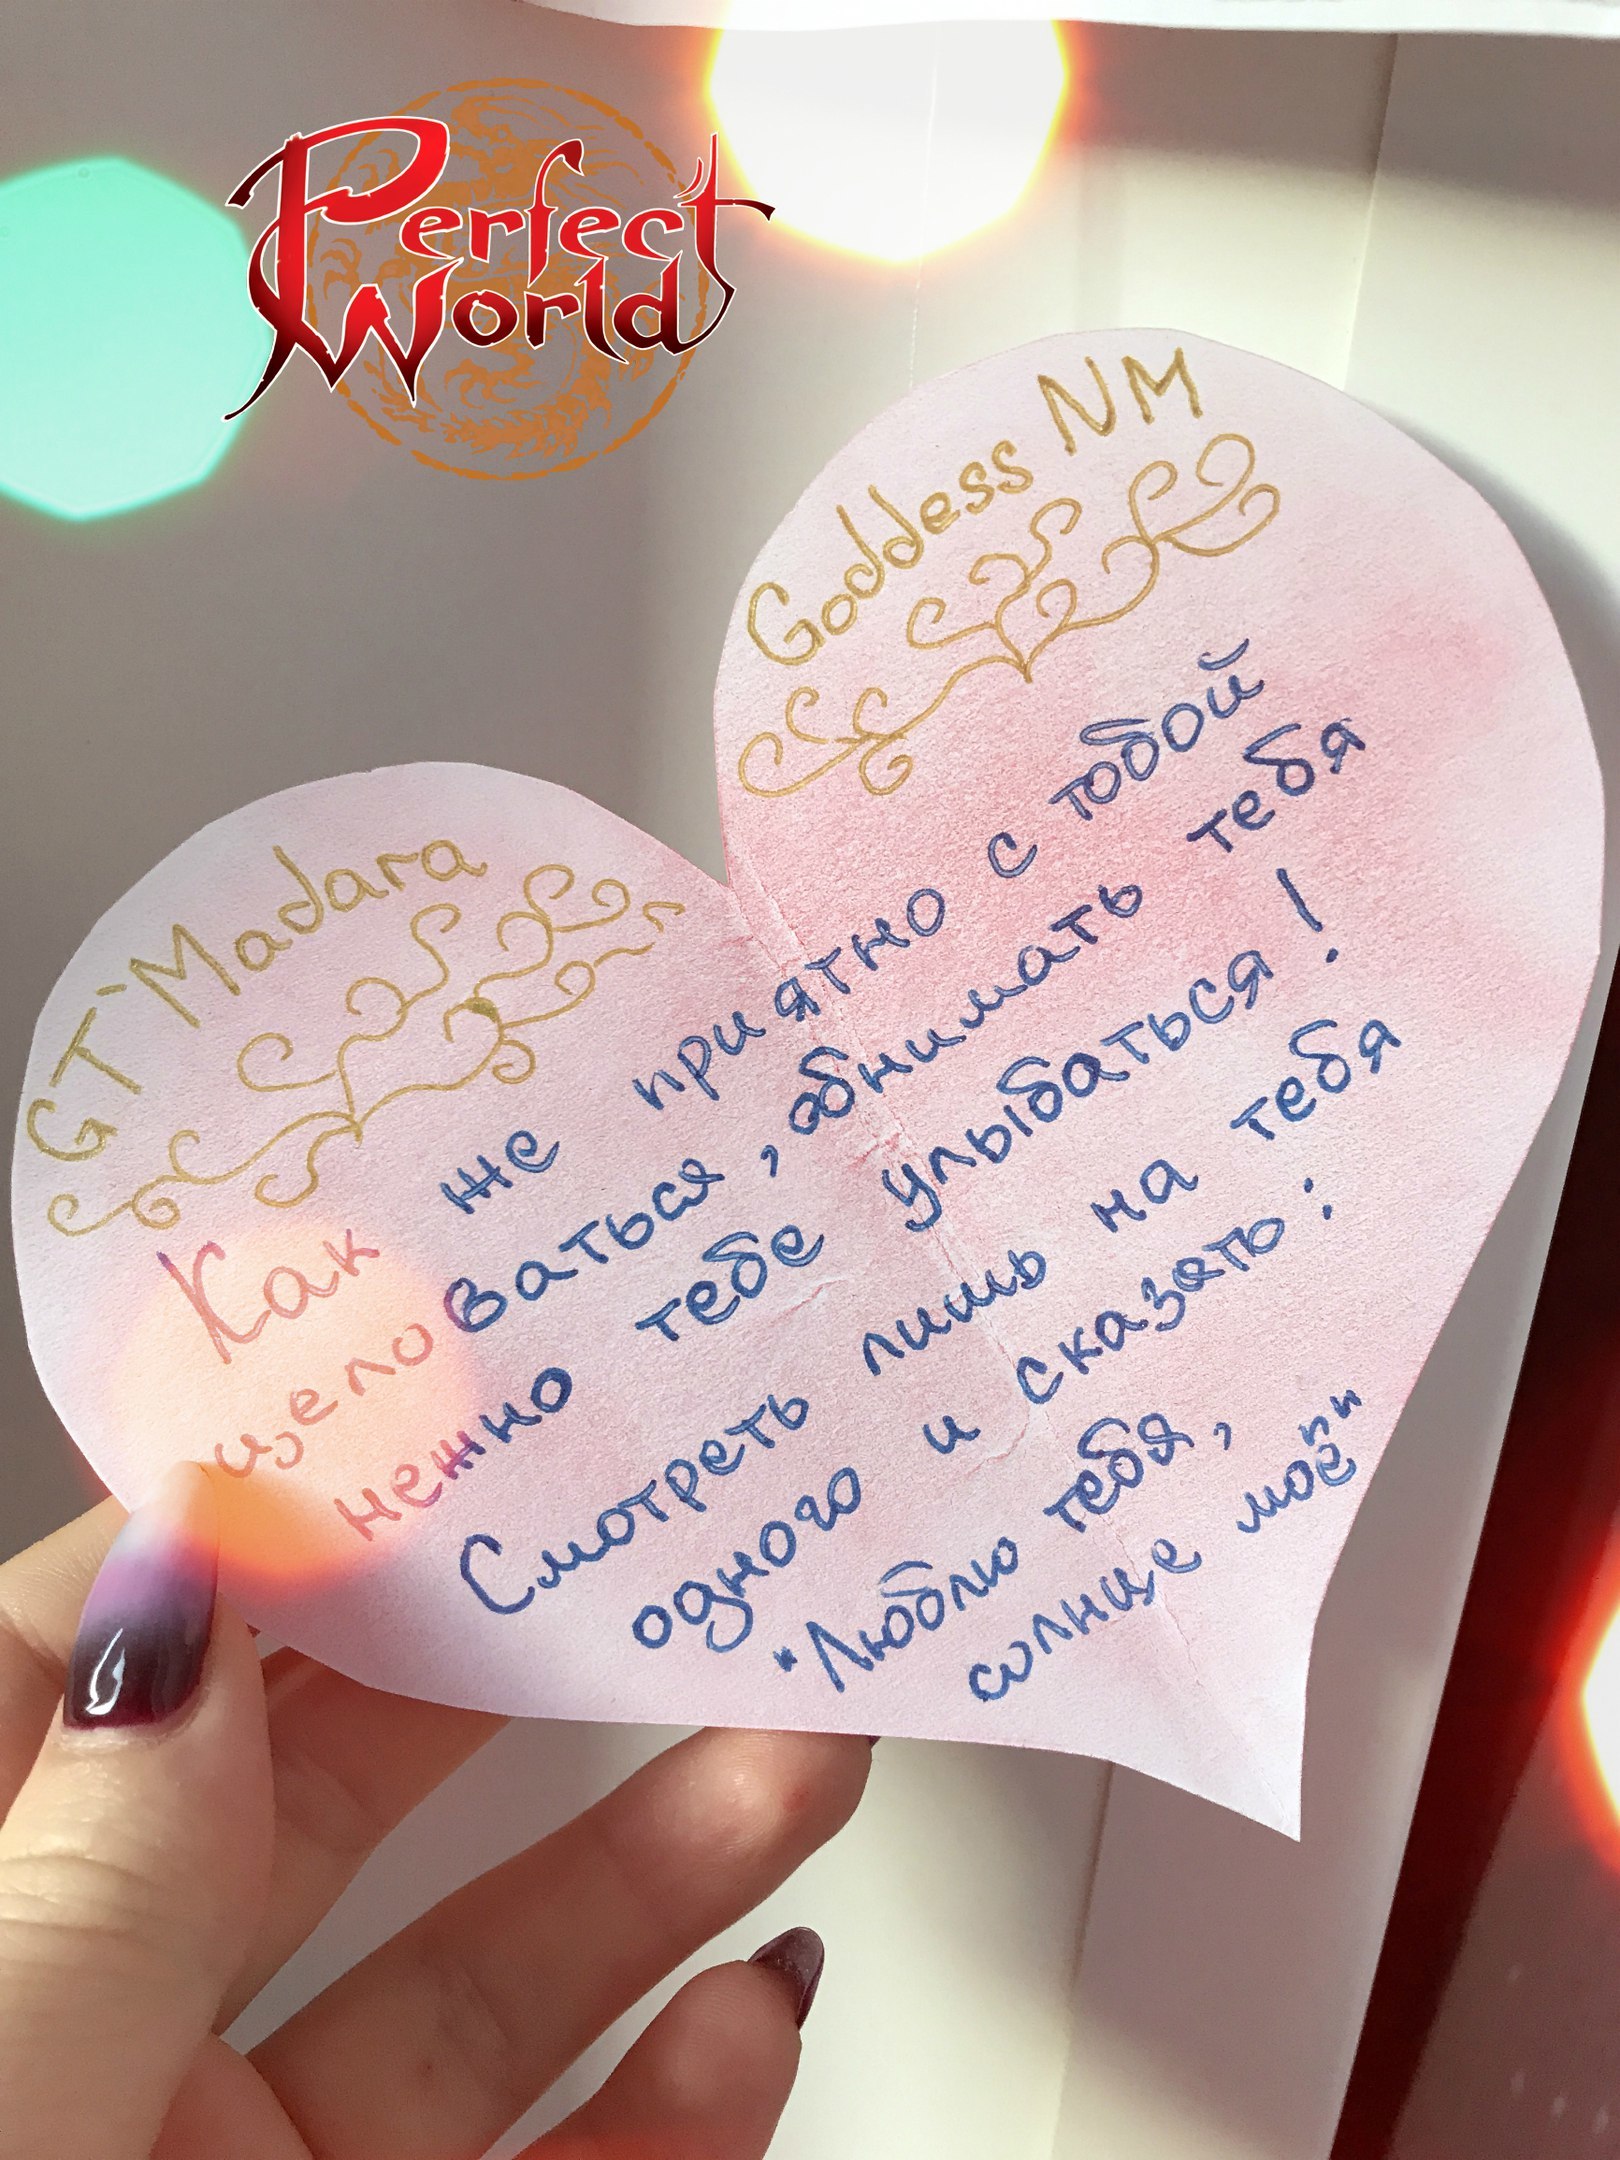 Perfect
World
GT`Madara
Goddess NM
Как же приятно с тобой
целоваться, обнимать тебя
нежно тебе улыбаться!
Смотреть лишь на тебя
одного и сказать:
"Люблю тебя,
солнце моё"